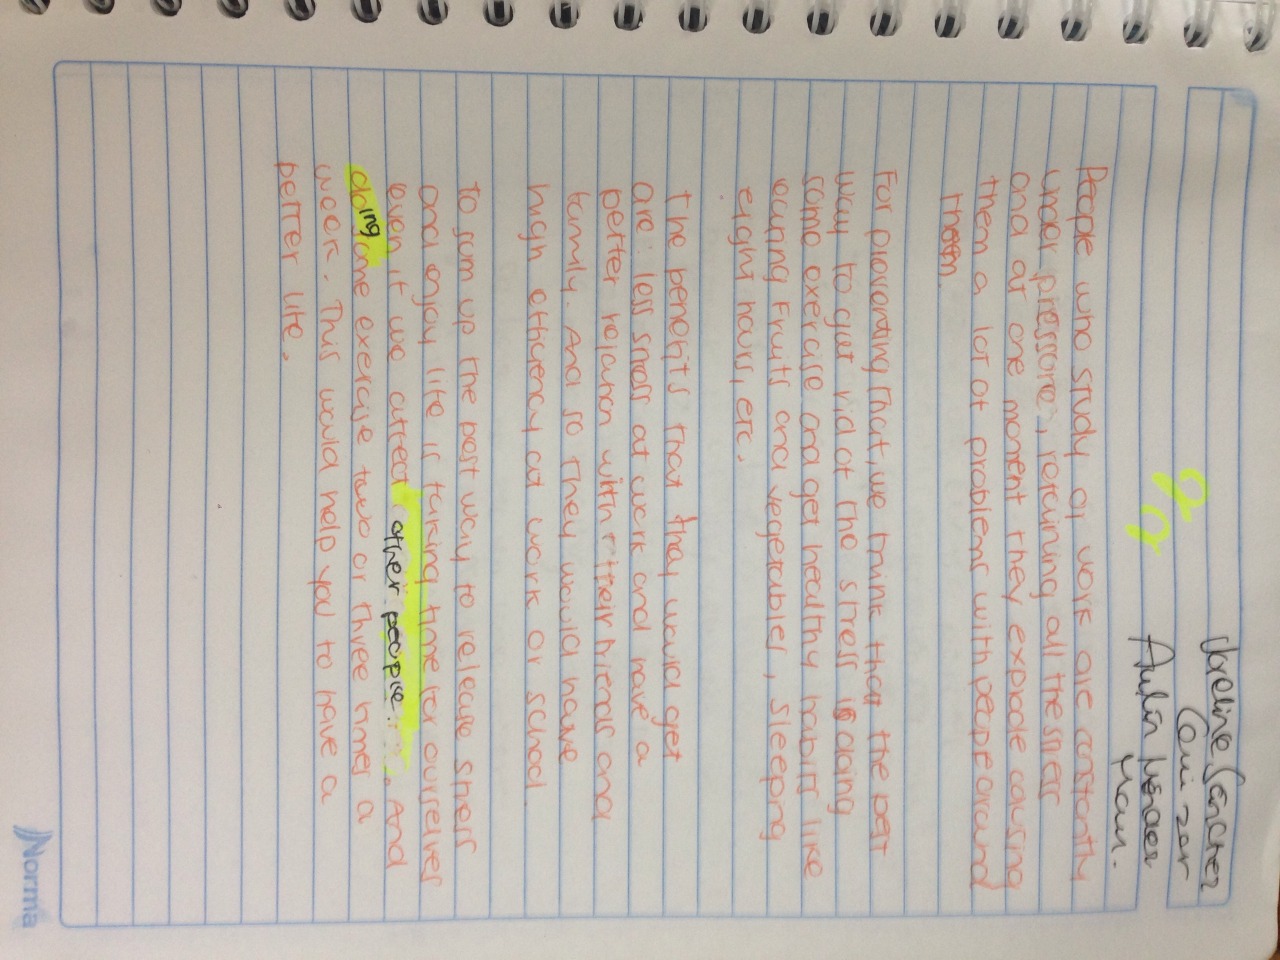 Jackeline Sanchez
Cañizar
Aulin Mendez
Yaur.
People who study or work are constantly
under pressore, retaining all the stress
and at one moment they explode causing
them a lot of problems with people around
them.
For proventing that, we think that the best
way to get rid of the stress is doing
some exercise and get healthy habits like
eating Fruits and vegetables, sleeping
eight hours, etc.
The benefits that they would get
are: less stress at work and have a
better relation with their friends and
family. And so they would have
high efficiency at work or school.
To som up the best way to release stress
and enjoy life is taking time for ourselves
even if we affect other people. And
doing some exercise twoo or three times a
week. This would help you to have a
better life.
Norma